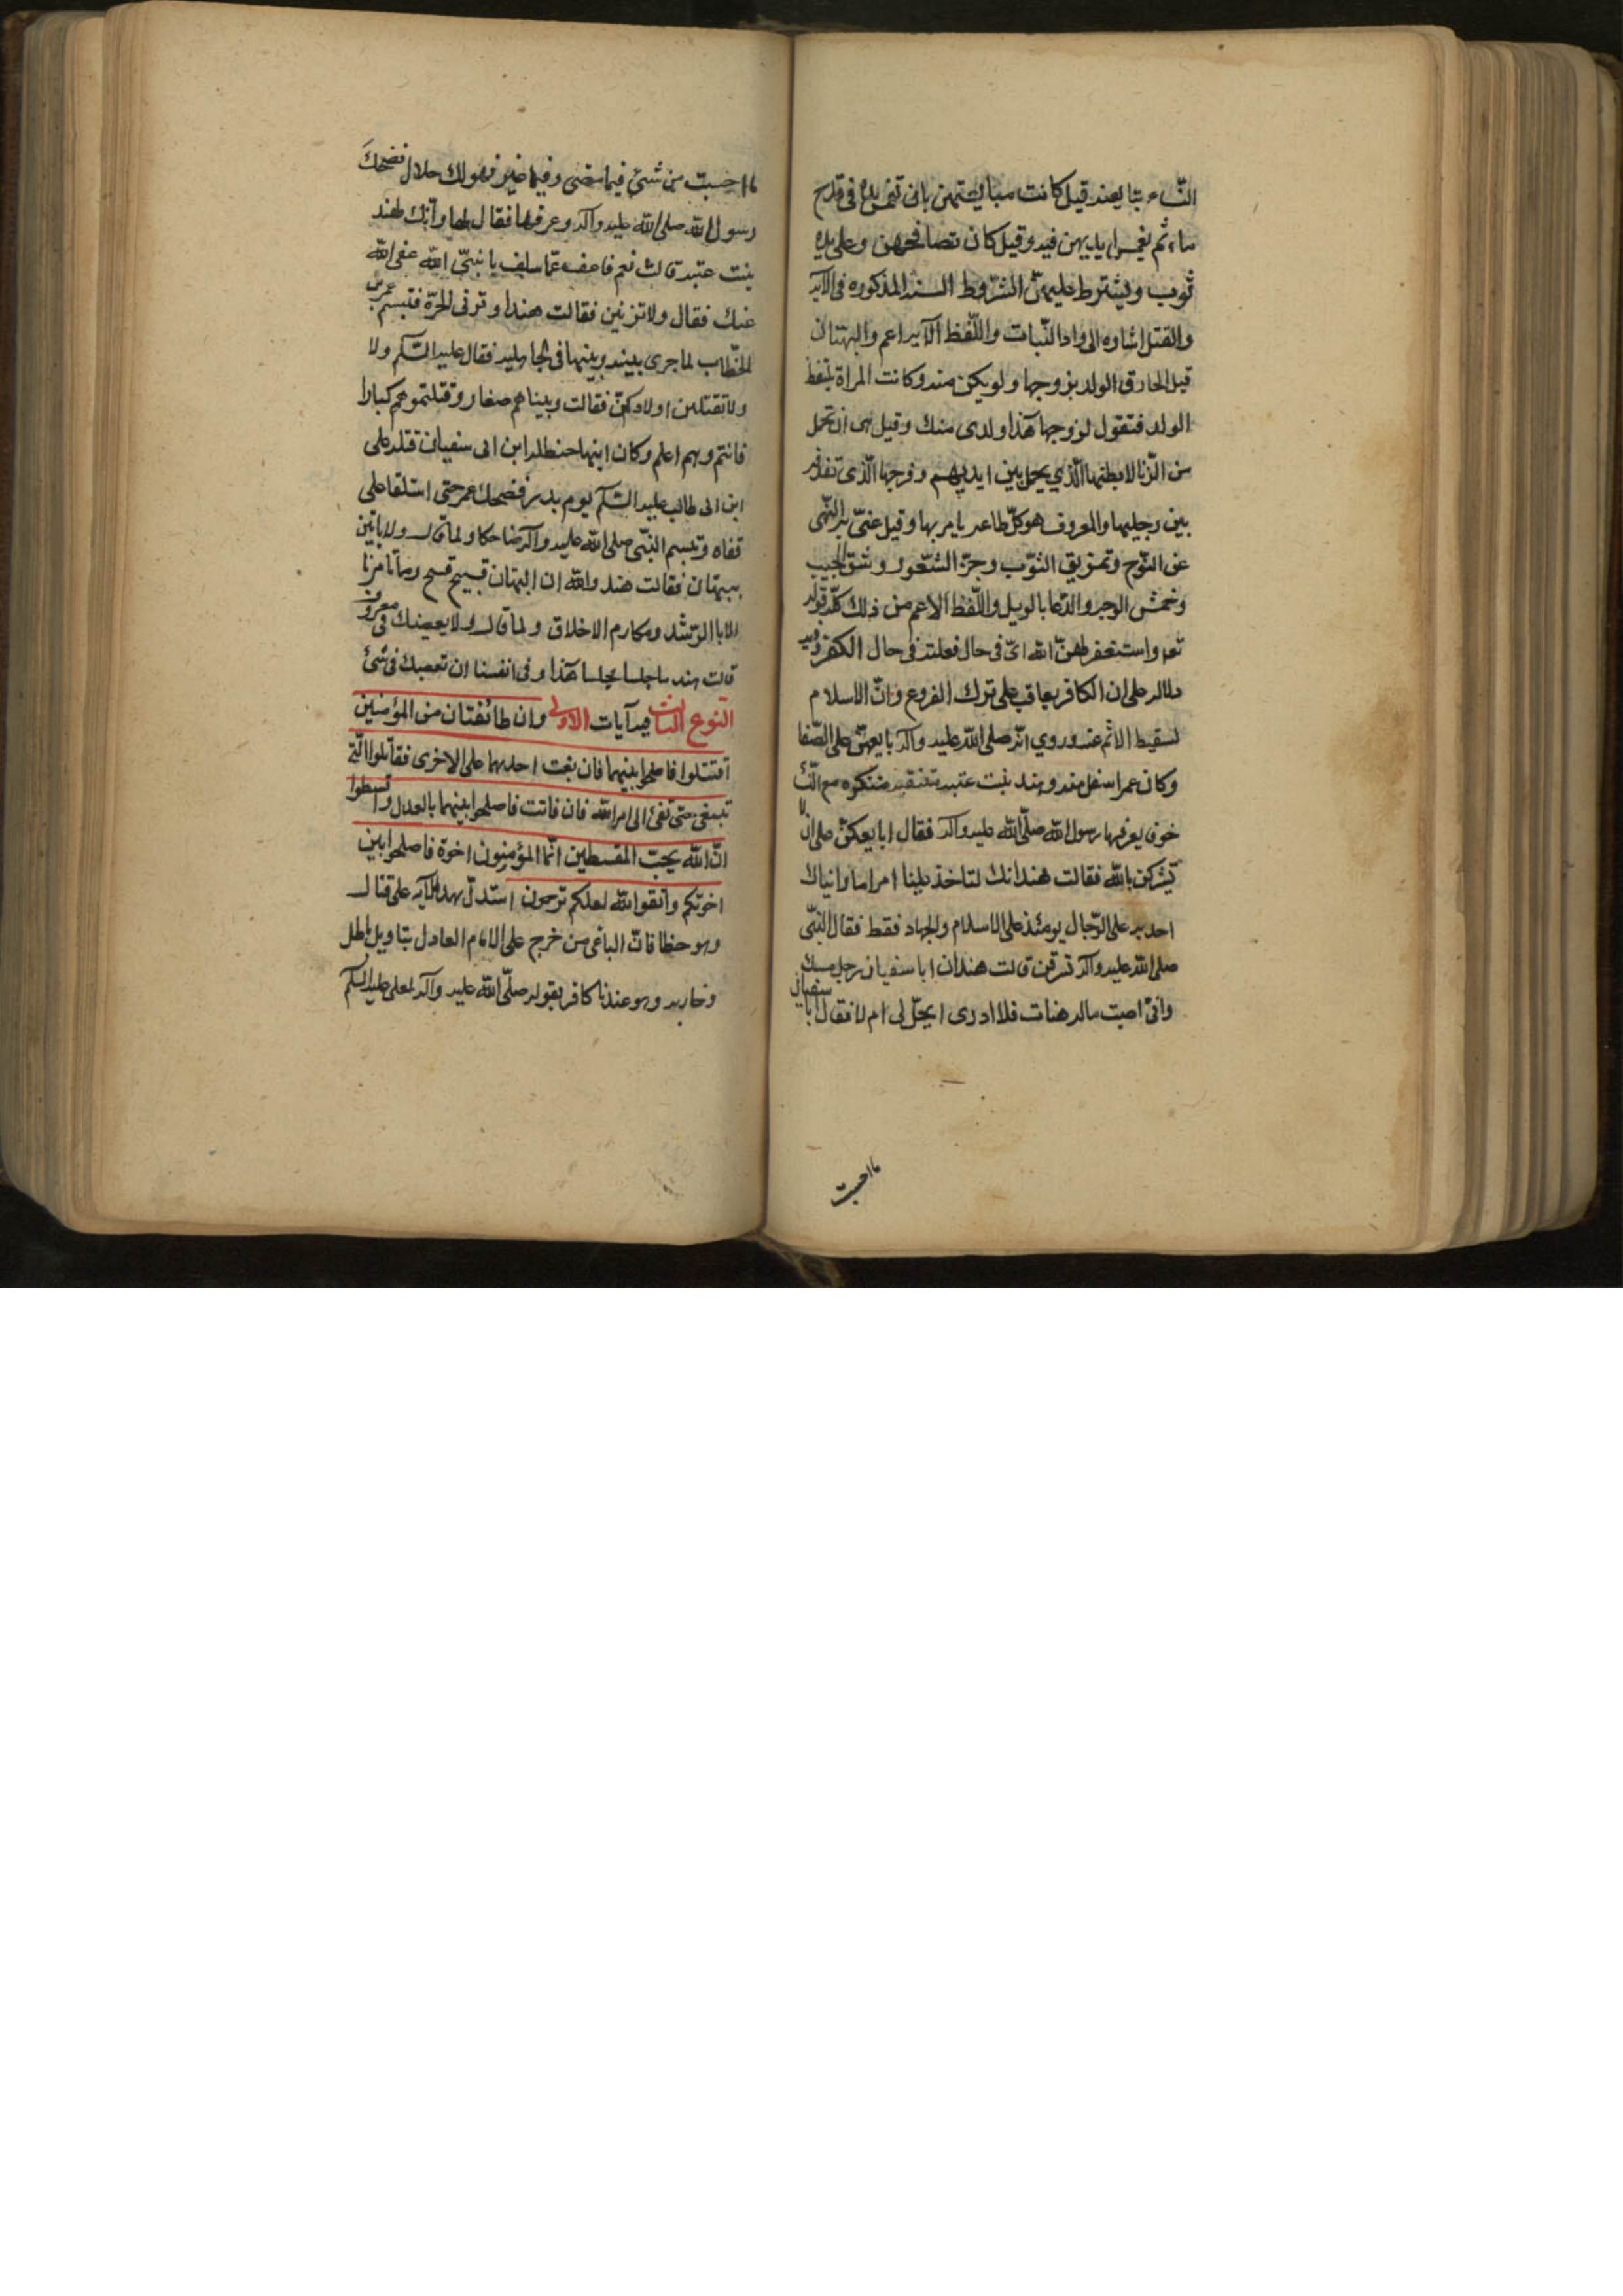 النّساء يبايعنه قيل كانت مبايعتهن بان تغمس يده فى قدح
ماء ثم يغمسن ايديهن فيه وقيل كان تصافحهن وعلى يده
ثوب ويشترط عليهنّ الشّروط الستة المذكوره فى الآيه
والقتل اشاره الى واد البنات واللّفظ الآيه اعم والبهتان
قيل الحاق الولد بزوجها ولم يكن منه وكانت المراة تلتقط
الولد فتقول لزوجها هذا ولدى منك وقيل هى ان تحمل
من الزّنا لان بطنها الّذي يحمل بين ايديهم وفرجها الّذى تقذفه
بين رجليها والمعروف هو كلّ طاعه يامر بها وقيل عنىّ به النّهى
عن النّوح وتمزيق الثوّب وجزّ الشّعور وشق الجيب
وخمش الوجه والدّعا بالويل واللّفظ الاعم من ذلك كلّه قوله
تعه واستغفر لهنّ الله اىّ فى حال فعلته فى حال الكفر وفيه
دلاله على ان الكافر يعاقب على ترك الفروع وانّ الاسلام
تسقيط الاثم عنه وروي انّه صلى الله عليه وآله بايعهنّ على الصّفا
وكان عمر اسفل منه وهند بنت عتبه متنقبه متنكره مع النّساء
خوف يعرفها رسول الله صلّى الله عليه وآله فقال ابايعكنّ على ان لا
تشركن بالله فقالت هند انك لتاخذ علينا امرا ما رايناك
احد به على الرّجال يومئذ على الاسلام والجهاد فقط فقال النّبى
صلى الله عليه وآله تسرقن قالت هند ان ابا سفيان رجل مسك
وانىّ اصبت ماله هنات فلا ادرى ايحلّ لى ام لا فقال ابا سفيان
ما احبت
ما احبت من شئ فيما مضى وفيما غبر فهو لك حلال فضحكَ
رسول الله صلى الله عليه وآله وعرفها فقال لها وانّك لهند
بنت عتبه قالت نعم فاعف عمّا سلف يا نبىّ الله عفى الله
عنك فقال ولا تزنين فقالت هند او تزنى الحرّة فتبسم عمر بن
الخطّاب لما جرى بينه وبينها فى الجاهليه فقال عليه السّلام ولا
ولا تقتلن اولادكنّ فقالت ربيناهم صغارا وقتلتموهم كبارا
فانتم وهم اعلم وكان ابنها حنظله ابن ابى سفيان قتله على
ابن ابى طالب عليه السّلام يوم بدر فضحك عمر حتى استلقا على
قفاه وتبسم النبّى صلى الله عليه وآله ضاحكا ولما قال ولا ياتين
ببهتان فقالت هند والله ان البهتان قبيح قسح وما تامرنا
الا با الرّشد ومكارم الاخلاق ولما قال ولا يعصينك فى معروف
قالت هند ما جلسنا مجلسنا هذا وفى انفسنا ان نعصيك فى شئ
النّوع الثالث فيه آيات الاولى وان طائفتان من المؤمنين
اقتتلوا فاصلحوا بينهما فان بغت احديهما على الاخرى فقاتلوا الّتى
تبغى حتى تفئ الى امر الله فان فاتت فاصلحوا بينهما بالعدل واقسطوا
انّ الله يحبّ المقسطين انّما المؤمنون اخوة فاصلحوا بين
اخوتكم واتّقوا الله لعلكم ترحمون استدلّ بهذا الآيه على قتال
وهو خطا فانّ الباغى من خرج على الامام العادل بتاويل باطل
وحاربه وهو عندنا كافر بقوله صلّى الله عليه وآله لعلى عليه السّلام